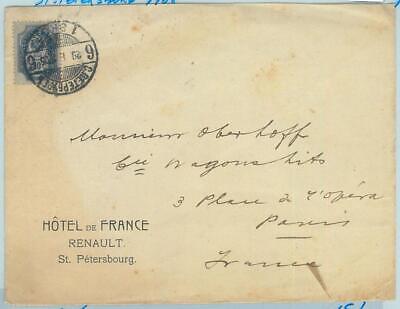 Monsieur Oberhoff
Cie Wagons lits
3 Place de l'Opéra
Paris
France
HÔTEL DE FRANCE
RENAULT.
St. Pétersbourg.